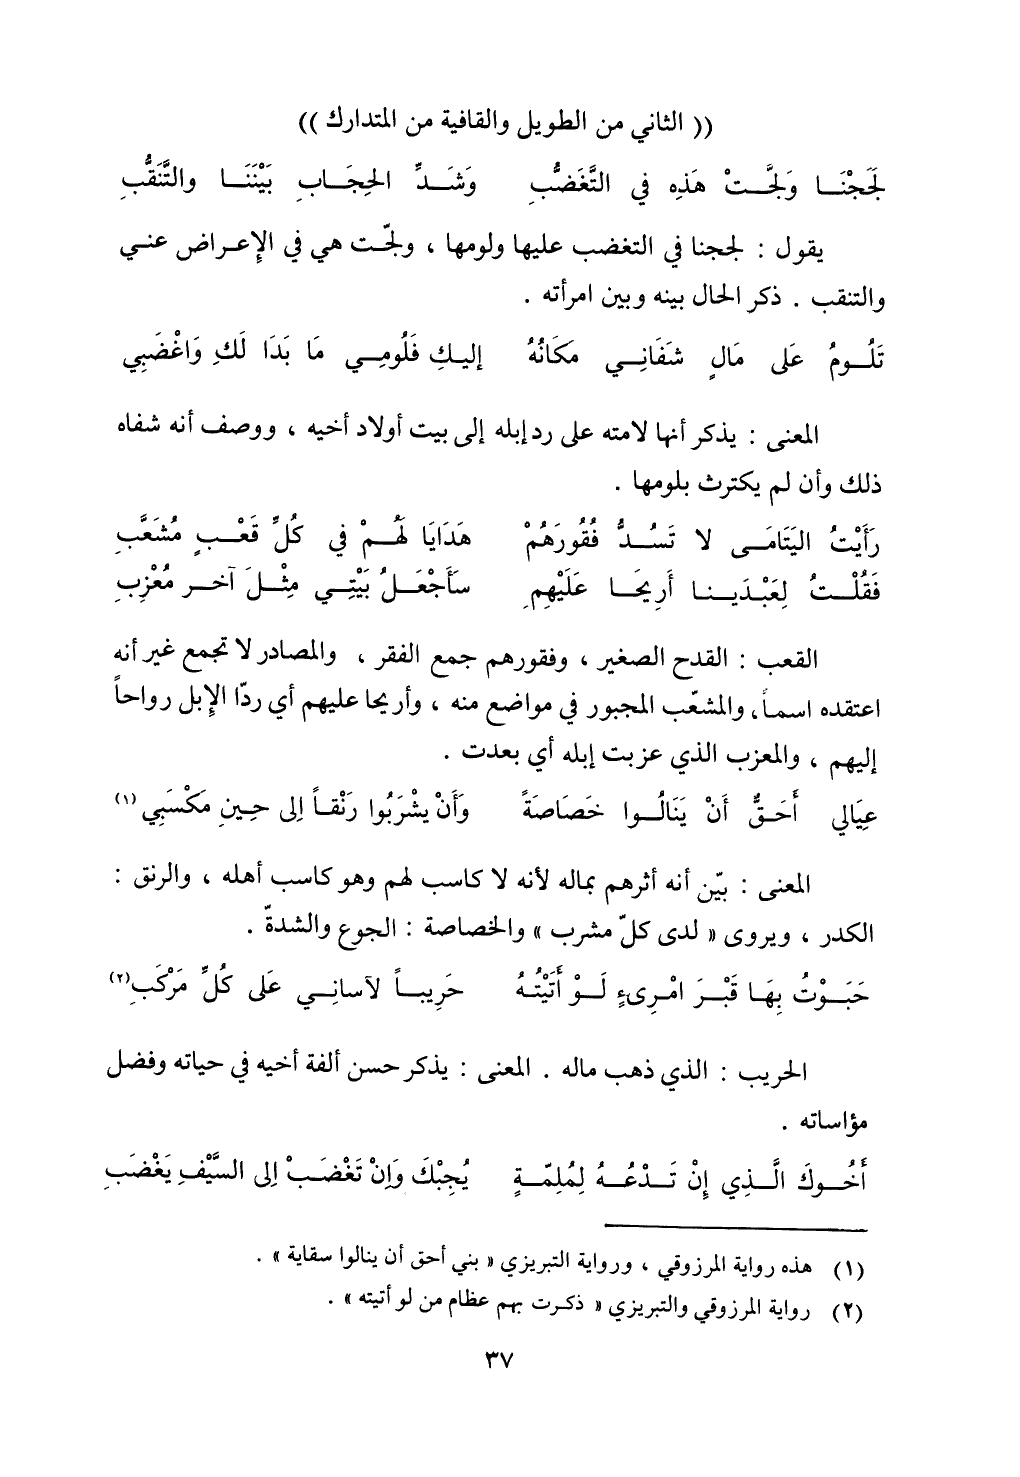 (( الثاني من الطويل والقافية من المتدارك ))
لَجَجْنَا وَلَجَّتْ هَذِهِ في التَّغَضُّبِ وَشَدِّ الحِجَابِ بَيْنَنَا والتَّنَقُّبِ
يقول : لججنا في التغضب عليها ولومها ، ولجّت هي في الإعراض عني
والتنقب . ذكر الحال بينه وبين امرأته .
تَلُومُ عَلى مَالٍ شَفَانِي مَكَانُهُ إليكِ فَلُومِي مَا بَدَا لَكِ وَاغْضَبِي
المعنى : يذكر أنها لامته على رد إبله إلى بيت أولاد أخيه ، ووصف أنه شفاه
ذلك وأن لم يكترث بلومها .
رَأَيْتُ اليَتَامَى لا تَسُدُّ فُقُورَهُمْ هَدَايَا لَهُمْ في كُلِّ قَعْبٍ مُشَعَّبِ
فَقُلْتُ لِعَبْدَيْنا أَرِيحَا عَلَيْهِمِ سَأَجْعَلُ بَيْتِي مِثْلَ آخر مُعْزِبِ
القعب : القدح الصغير ، وفقورهم جمع الفقر ، والمصادر لا تجمع غير أنه
اعتقده اسماً، والمشعّب المجبور في مواضع منه ، وأريحا عليهم أي ردّا الإبل رواحاً
إليهم ، والمعزب الذي عزبت إبله أي بعدت .
عِيَالي أَحَقُّ أَنْ يَنَالُوا خَصَاصَةً وَأَنْ يشْرَبُوا رَنْقاً اِلى حِينِ مَكْسَبِي (١)
المعنى : بيّن أنه أثرهم بماله لأنه لا كاسب لهم وهو كاسب أهله ، والرنق :
الكدر ، ويروى « لدى كلّ مشرب » والخصاصة : الجوع والشدةّ .
حَبَوْتُ بِهَا قَبْرَ امْرِىءٍ لَوْ أَتَيْتُهُ حَرِيباً لآسانِي عَلى كُلِّ مَرْكَبِ (٢)
الحريب : الذي ذهب ماله . المعنى : يذكر حسن ألفة أخيه في حياته وفضل
مؤاساته .
أَخُوكَ الَّذِي إِنْ تَدْعُهُ لِمُلِمَّةٍ يُجِبْكَ وَاِنْ تَغْضَبْ اِلى السَّيْفِ يَغْضَبِ
(١) هذه رواية المرزوقي ، ورواية التبريزي « بني أحق أن ينالوا سقاية » .
(٢) رواية المرزوقي والتبريزي « ذكرت بهم عظام من لو أتيته » .
٣٧